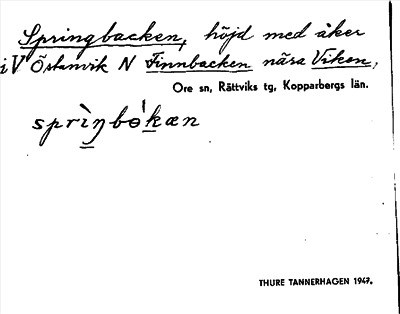 Springbacken, höjd med åker
i V Östanvik N Finnbacken nära Viken,
Ore sn, Rättviks tg, Kopparbergs län.
sprìŋbɵ́kæn
THURE TANNERHAGEN 1947.